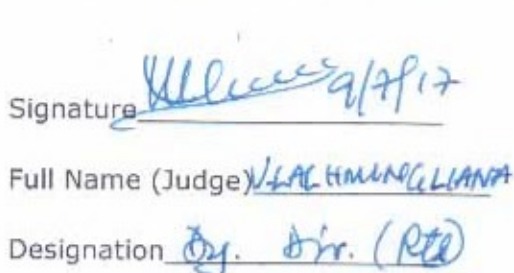 Signature 9/7/17
Full Name (Judge) V. LALHMINGLIANA
Designation Dy. Dir. (Rtd)